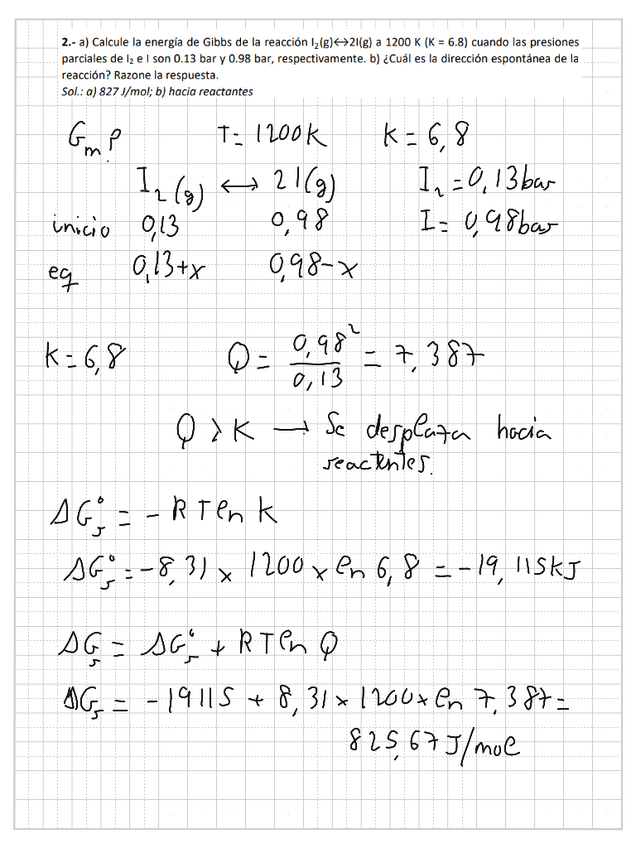 2.- a) Calcule la energía de Gibbs de la reacción I₂(g)↔2I(g) a 1200 K (K = 6.8) cuando las presiones
parciales de I₂ e I son 0.13 bar y 0.98 bar, respectivamente. b) ¿Cuál es la dirección espontánea de la
reacción? Razone la respuesta.
Sol.: a) 827 J/mol; b) hacia reactantes
Gm? T= 1200K K= 6,8
I₂(g) ↔ 2I(g) I₂=0,13bar
inicio 0,13 0,98 I= 0,98bar
eq 0,13+x 0,98-x
K=6,8 Q= 0,98²/0,13 = 7,387
Q > K → Se desplaza hacia
reactantes.
ΔGᵣ° = - R T ln K
ΔGᵣ° = -8,31 x 1200 x ln 6,8 = -19,115kJ
ΔGᵣ = ΔGᵣ° + R T ln Q
ΔGᵣ = -19115 + 8,31 x 1200 x ln 7,387=
825,67 J/mol